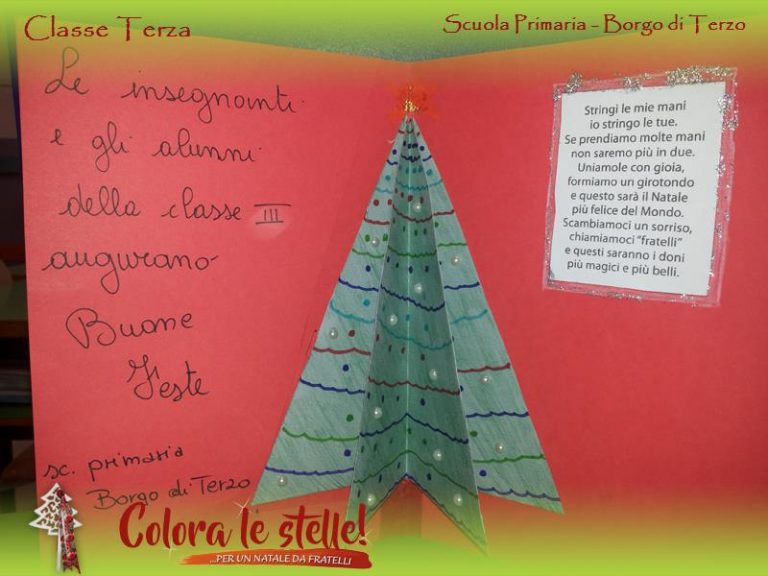 Classe Terza
Scuola Primaria - Borgo di Terzo
Le insegnanti
e gli alunni
della classe III
augurano
Buone
Feste
sc. primaria
Borgo di Terzo
Stringi le mie mani
io stringo le tue.
Se prendiamo molte mani
non saremo più in due.
Uniamole con gioia,
formiamo un girotondo
e questo sarà il Natale
più felice del Mondo.
Scambiamoci un sorriso,
chiamiamoci "fratelli"
e questi saranno i doni
più magici e più belli.
Colora le stelle!
...PER UN NATALE DA FRATELLI